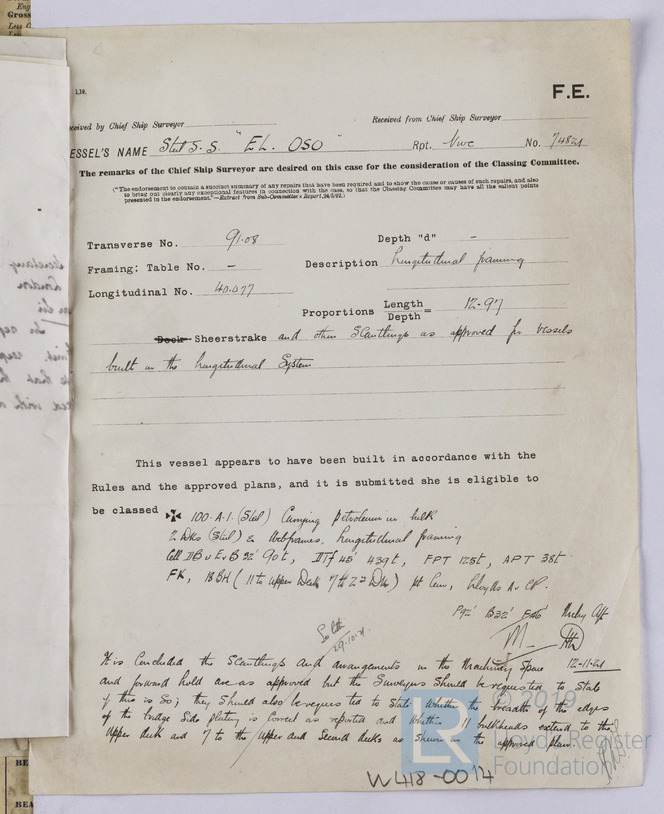 Gross
1,16.
F.E.
eceived by Chief Ship Surveyor
Received from Chief Ship Surveyor
ESSEL'S NAME Steel S.S. "EL OSO" Rpt. Nwc No. 74821
The remarks of the Chief Ship Surveyor are desired on this case for the consideration of the Classing Committee.
("The endorsement to contain a succinct summary of any repairs that have been required and to show the cause or causes of such repairs, and also
to bring out clearly any exceptional features in connection with the case, so that the Classing Committee may have all the salient points
presented in the endorsement."—Extract from Sub-Committee's Report,
Transverse No. 91.08 Depth "d" -
Framing: Table No. - Description Longitudinal framing
Longitudinal No. 40.077
Proportions Length/Depth = 12.97
Deck Sheerstrake and other Scantlings as approved for vessels
built on the Longitudinal System
This vessel appears to have been built in accordance with the
Rules and the approved plans, and it is submitted she is eligible to
be classed ✠ 100.A.1. (Steel) Carrying petroleum in bulk
2 Dks (Steel) & Webframes, Longitudinal framing
Cell DB u E u B 32' 90t, DTf 45' 439t, FPT 125t, APT 38t
FK, 18BH (11 to upper Deck 7 to 2nd Dk) pt Cem, Lloyds A & CP.
P92' B32' F46' Mchy Aft
12-11-21
See letter
29.10.21
It is concluded the Scantlings and arrangements in the Machinery Space
and forward hold are as approved but the Surveyors should be requested to state
if this is so; they should also be requested to state whether the breadth of the edges
of the bridge side plating is correct as reported and whether 11 bulkheads extend to the
upper deck and 7 to the upper and second decks as shewn in the approved plan.
© 2019
Lloyd's Register
Foundation
LR
W418-0014